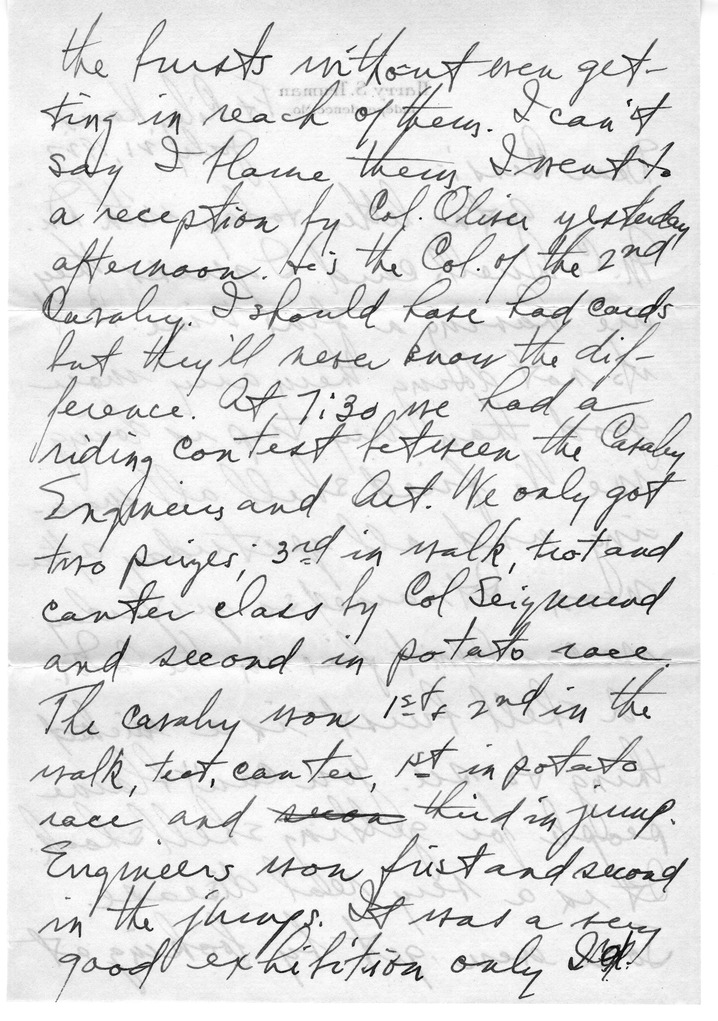 the bursts without even get-
ting in reach of them. I can't
say I blame them. I went to
a reception by Col. Oliver yesterday
afternoon. He's the Col. of the 2nd
Cavalry. I should have had cards
but they'll never know the dif-
ference. At 7:30 we had a
riding contest between the Cavalry
Engineers and Art. We only got
two prizes; 3rd in walk, trot and
canter class by Col Seigmund
and second in potato race.
The cavalry won 1st & 2nd in the
walk, trot, canter, 1st in potato
race and third in jump.
Engineers won first and second
in the jumps. It was a very
good exhibition only I'd